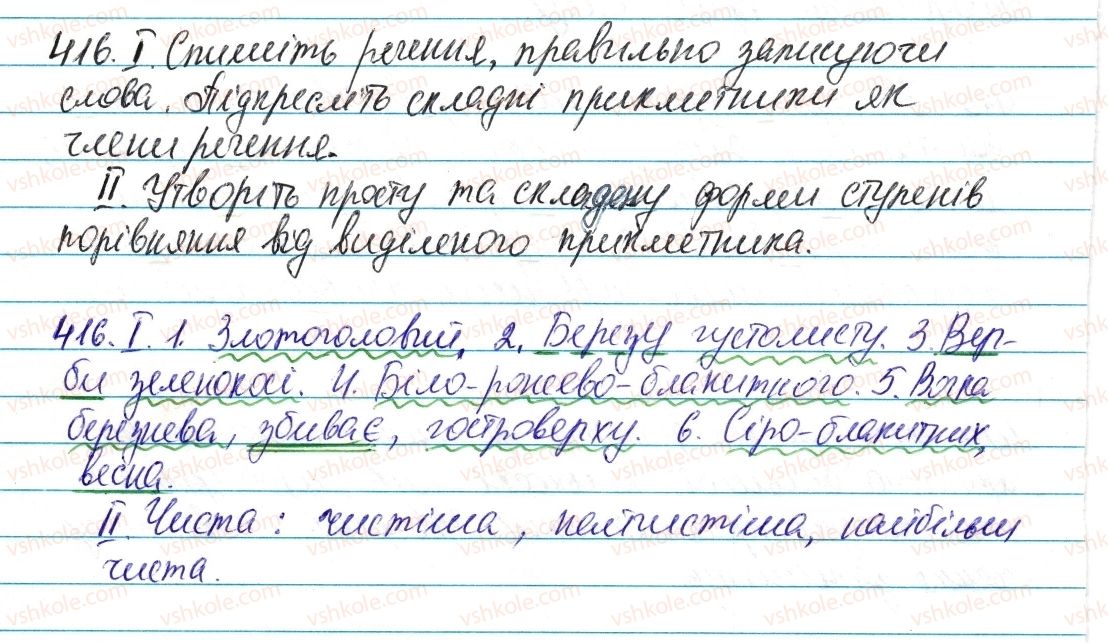 416. I. Спишіть речення, правильно записуючи
слова. Підкресліть складні прикметники як
члени речення.
II. Утворіть просту та складену форми ступенів
порівняння від виділеного прикметника.
416. I. 1. Злотоголовий, 2. Березу густолисту. 3. Вер-
би зеленокосі. 4. Біло-рожево-блакитного. 5. Вогка
березнева, збиває, гостроверху. 6. Сіро-блакитних,
весна.
II. Чиста: чистіша, найчистіша, найбільш
чиста.